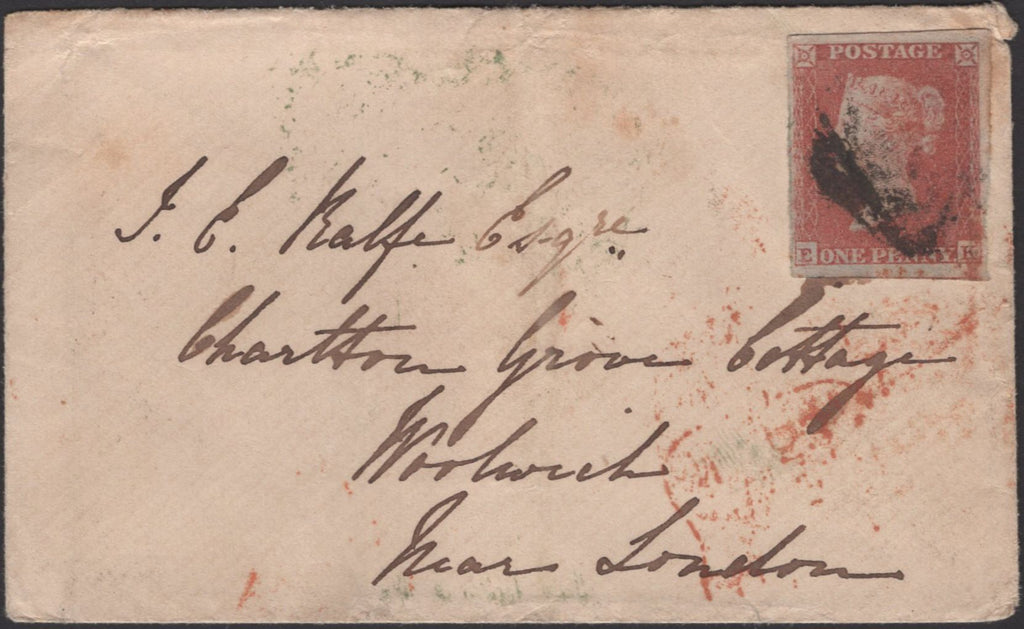 POSTAGE
E ONE PENNY K
J. E. Ralfe Esqre
Charlton Grove Cottage
Woolwich
Near London